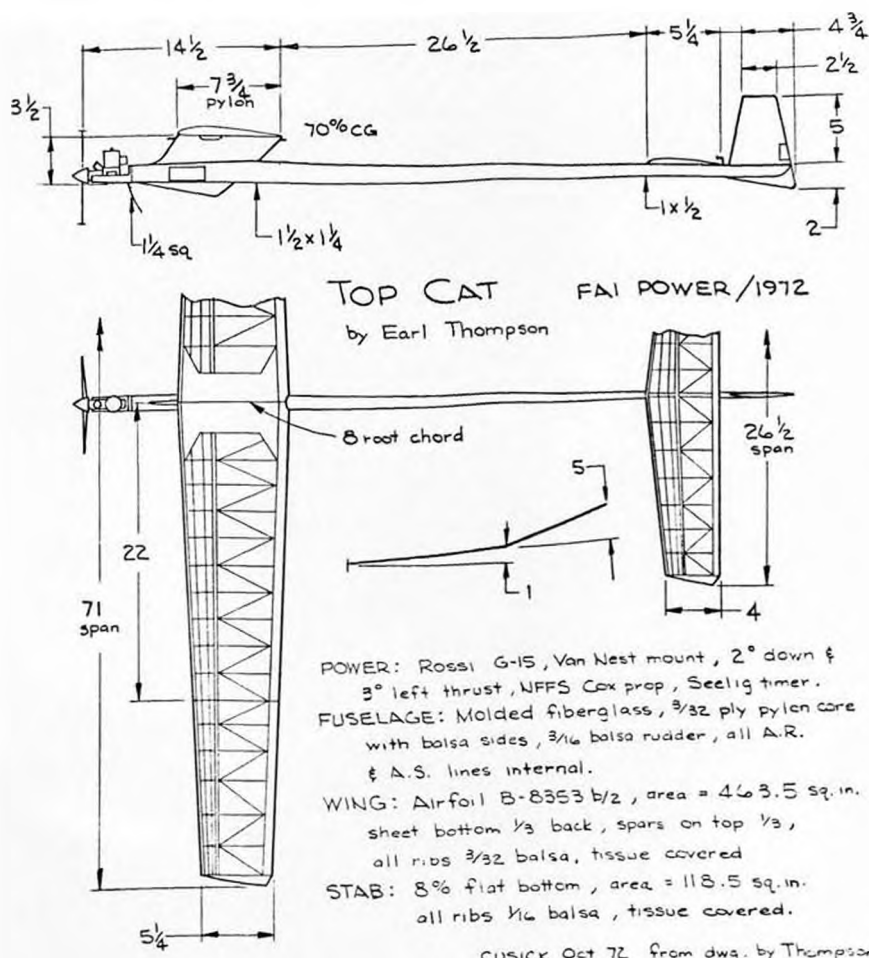 14½
26½
5¼
4¾
2½
7¾
pylon
3½
70% CG
5
1¼ sq
1½ x 1¼
1 x ½
2
TOP CAT
FAI POWER/1972
by Earl Thompson
8 root chord
26½
span
5
22
1
71
span
4
POWER: Rossi G-15, Van Nest mount, 2° down &
3° left thrust, NFFS Cox prop, Seelig timer.
FUSELAGE: Molded fiberglass, 3/32 ply pylon core
with balsa sides, 3/16 balsa rudder, all A.R.
& A.S. lines internal.
WING: Airfoil B-8353 b/2, area = 463.5 sq. in.
sheet bottom ⅓ back, spars on top ⅓,
all ribs 3/32 balsa, tissue covered
STAB: 8% flat bottom, area = 118.5 sq. in.
all ribs 1/16 balsa, tissue covered.
5¼
CUSICK Oct 72 from dwg. by Thompson